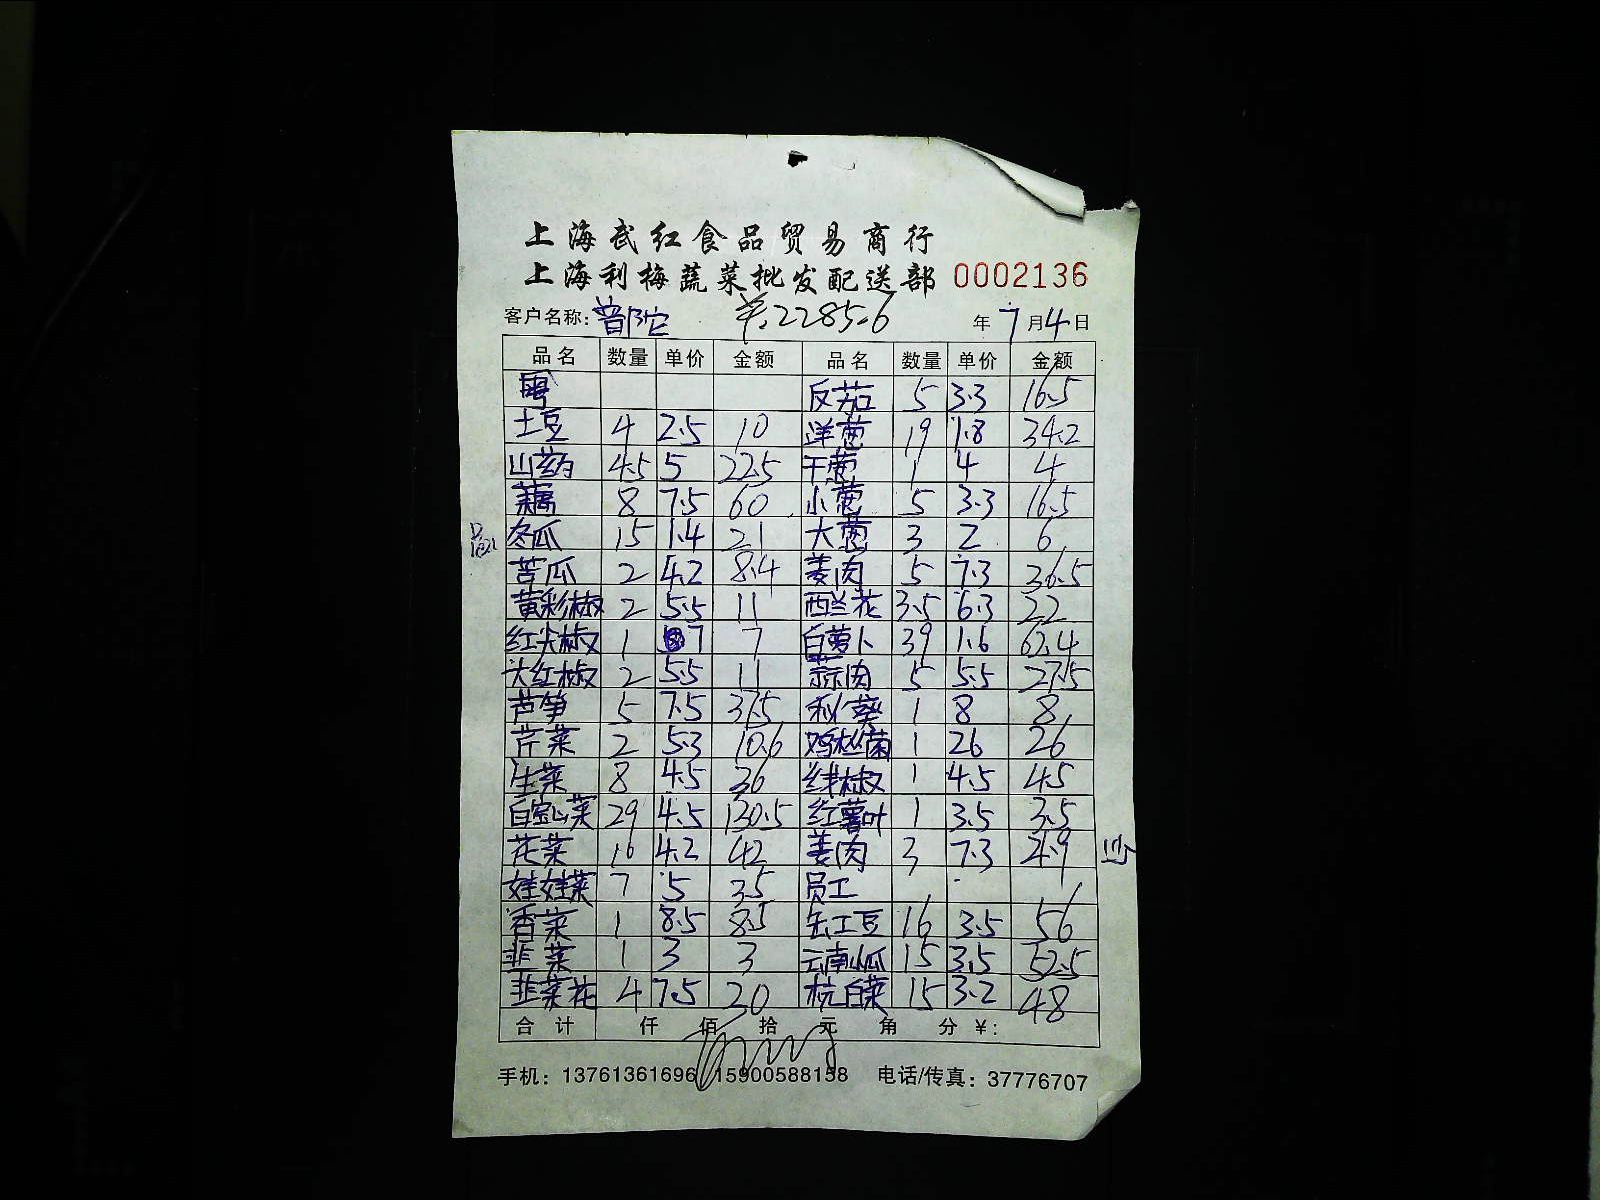 上海武红食品贸易商行
上海利梅蔬菜批发配送部 0002136
客户名称: 普陀 ¥:2285.6 年 7月4日
品名 数量 单价 金额 品名 数量 单价 金额
粤 反茄 5 3.3 16.5
土豆 4 2.5 10 洋葱 19 1.8 34.2
山药 4.5 5 22.5 干葱 1 4 4
藕 8 7.5 60 小葱 5 3.3 16.5
冬瓜 15 1.4 21 大葱 3 2 6
苦瓜 2 4.2 8.4 姜肉 5 7.3 36.5
黄彩椒 2 5.5 11 西兰花 3.5 6.3 22
红尖椒 1 7 7 白萝卜 39 1.6 62.4
大红椒 2 5.5 11 蒜肉 5 5.5 27.5
芦笋 5 7.5 37.5 秋葵 1 8 8
芹菜 2 5.3 10.6 鸡枞菌 1 26 26
生菜 8 4.5 36 线椒 1 4.5 4.5
白宝山菜 29 4.5 130.5 红薯叶 1 3.5 3.5
花菜 10 4.2 42 姜肉 3 7.3 21.9
娃娃菜 7 5 35 员工
香菜 1 8.5 8.5 缸工豆 16 3.5 56
韭菜 1 3 3 云南小瓜 15 3.5 52.5
韭菜花 4 7.5 30 杭白菜 15 3.2 48
合计 仟 佰 拾 元 角 分 ¥:
手机: 13761361696 15900588158 电话/传真: 37776707